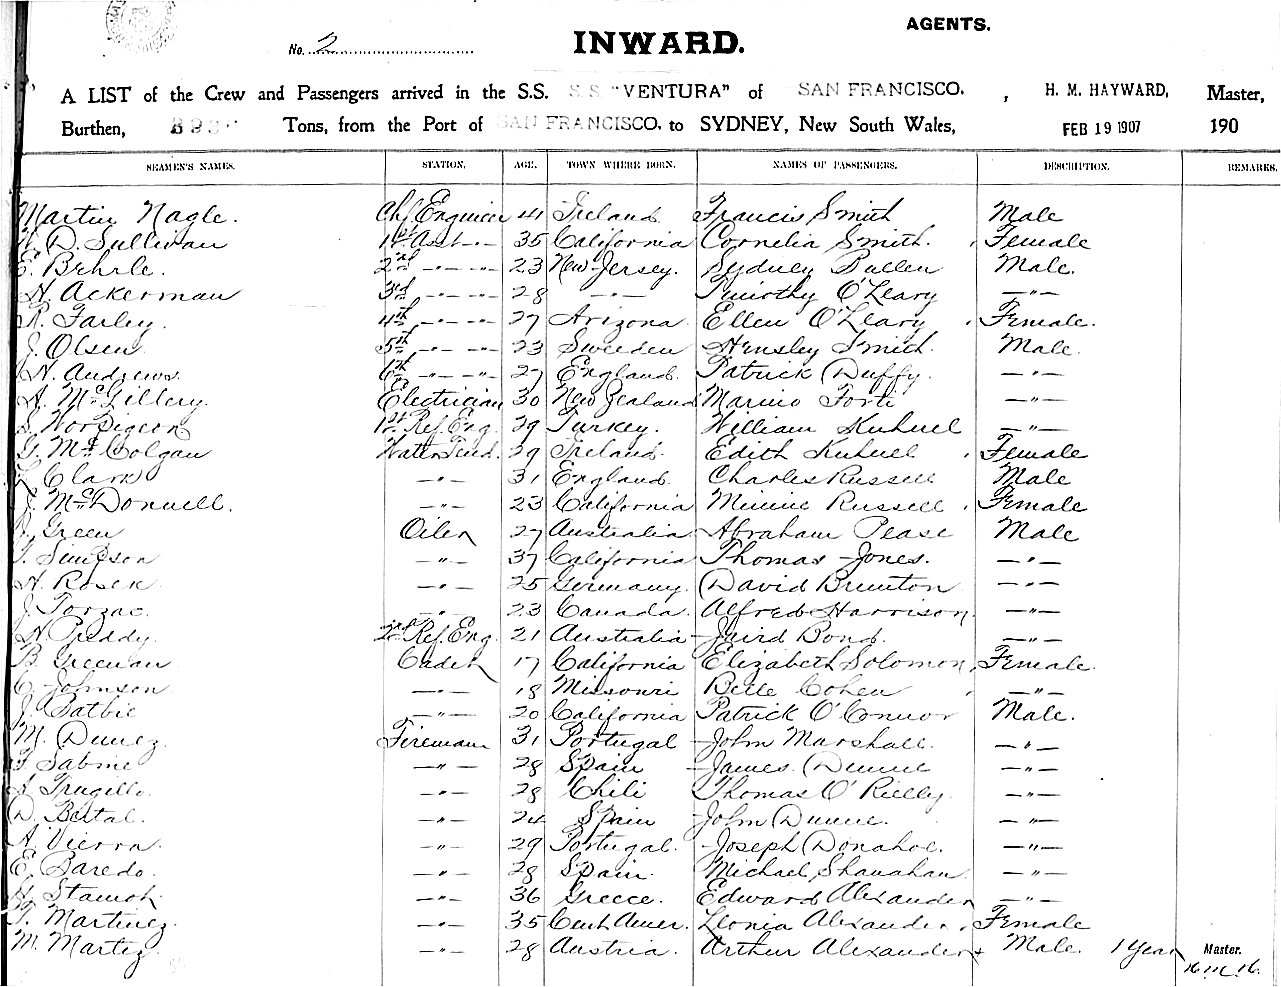 AGENTS.
No. 2
INWARD.
A LIST of the Crew and Passengers arrived in the S.S. S.S. "VENTURA" of SAN FRANCISCO. , H. M. HAYWARD, Master,
Burthen, Tons, from the Port of SAN FRANCISCO. to SYDNEY, New South Wales, FEB 19 1907 190
SEAMEN'S NAMES. STATION. AGE. TOWN WHERE BORN. NAMES OF PASSENGERS. DESCRIPTION. REMARKS.
Martin Nagle. Chf Engineer 41 Ireland Francis Smith Male
W. D. Sullivan 1st Asst 35 California Cornelia Smith. Female
E. Behrle. 2nd -"- -"- 23 New-Jersey. Sydney Bullen Male.
H. Ackerman 3rd -"- -"- 28 -"- Timothy O'Leary -"-
R. Farley. 4th -"- -"- 27 Arizona Ellen O'Leary Female.
J. Olsen 5th -"- -"- 23 Sweden Hensley Smith. Male.
H. Andrews. 6th -"- -"- 27 England. Patrick Duffy. -"-
A. McGillery. Electrician 30 New Zealand Marino Forti -"-
Wor Pigeon 1st Ref. Eng. 29 Turkey. William Kuhnel -"-
G. McColgan Water Tend. 29 Ireland. Edith Kuhnel Female
Clark -"- 31 England. Charles Russell Male
J. McDonnell. -"- 23 California Minnie Russell Female
J. Green Oiler 27 Australia Abraham Pease Male
T. Simpson -"- 37 California Thomas Jones. -"-
H. Rosen -"- 25 Germany. David Brunton -"-
J. Torzac. -"- 23 Canada. Alfred Harrison. -"-
H. Preddy. 2nd Ref. Eng. 21 Australia Jaird Bond. -"-
B. Greenan Cadet 17 California Elizabeth Solomon, Female.
C. Johnson -"- 18 Missouri Belle Cohen -"-
J. Batbie -"- 20 California Patrick O'Connor Male.
M. Dunez. Fireman 31 Portugal John Marshall. -"-
F. Sabine -"- 28 Spain James Dunne -"-
A. Trugillo. -"- 28 Chili Thomas O'Reilly. -"-
D. Bital. -"- 24 Spain John Dunne. -"-
A. Vierra. -"- 29 Portugal. Joseph Donahoe. -"-
E. Baredo. -"- 28 Spain. Michael Shanahan. -"-
Stamoh -"- 36 Greece. Edward Alexander -"-
T. Martinez. -"- 35 Cent Amer. Leonia Alexander. Female
M. Martez. -"- 28 Austria. Arthur Alexander Male. 1 Year Master.